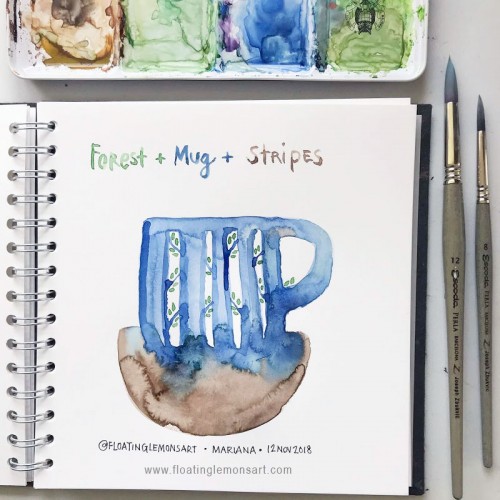 Forest + Mug + STRIPES
@FLOATINGLEMONSART • MARIANA • 12 NOV 2018
www.floatinglemonsart.com
12 Escoda PERLA
8 Escoda PERLA